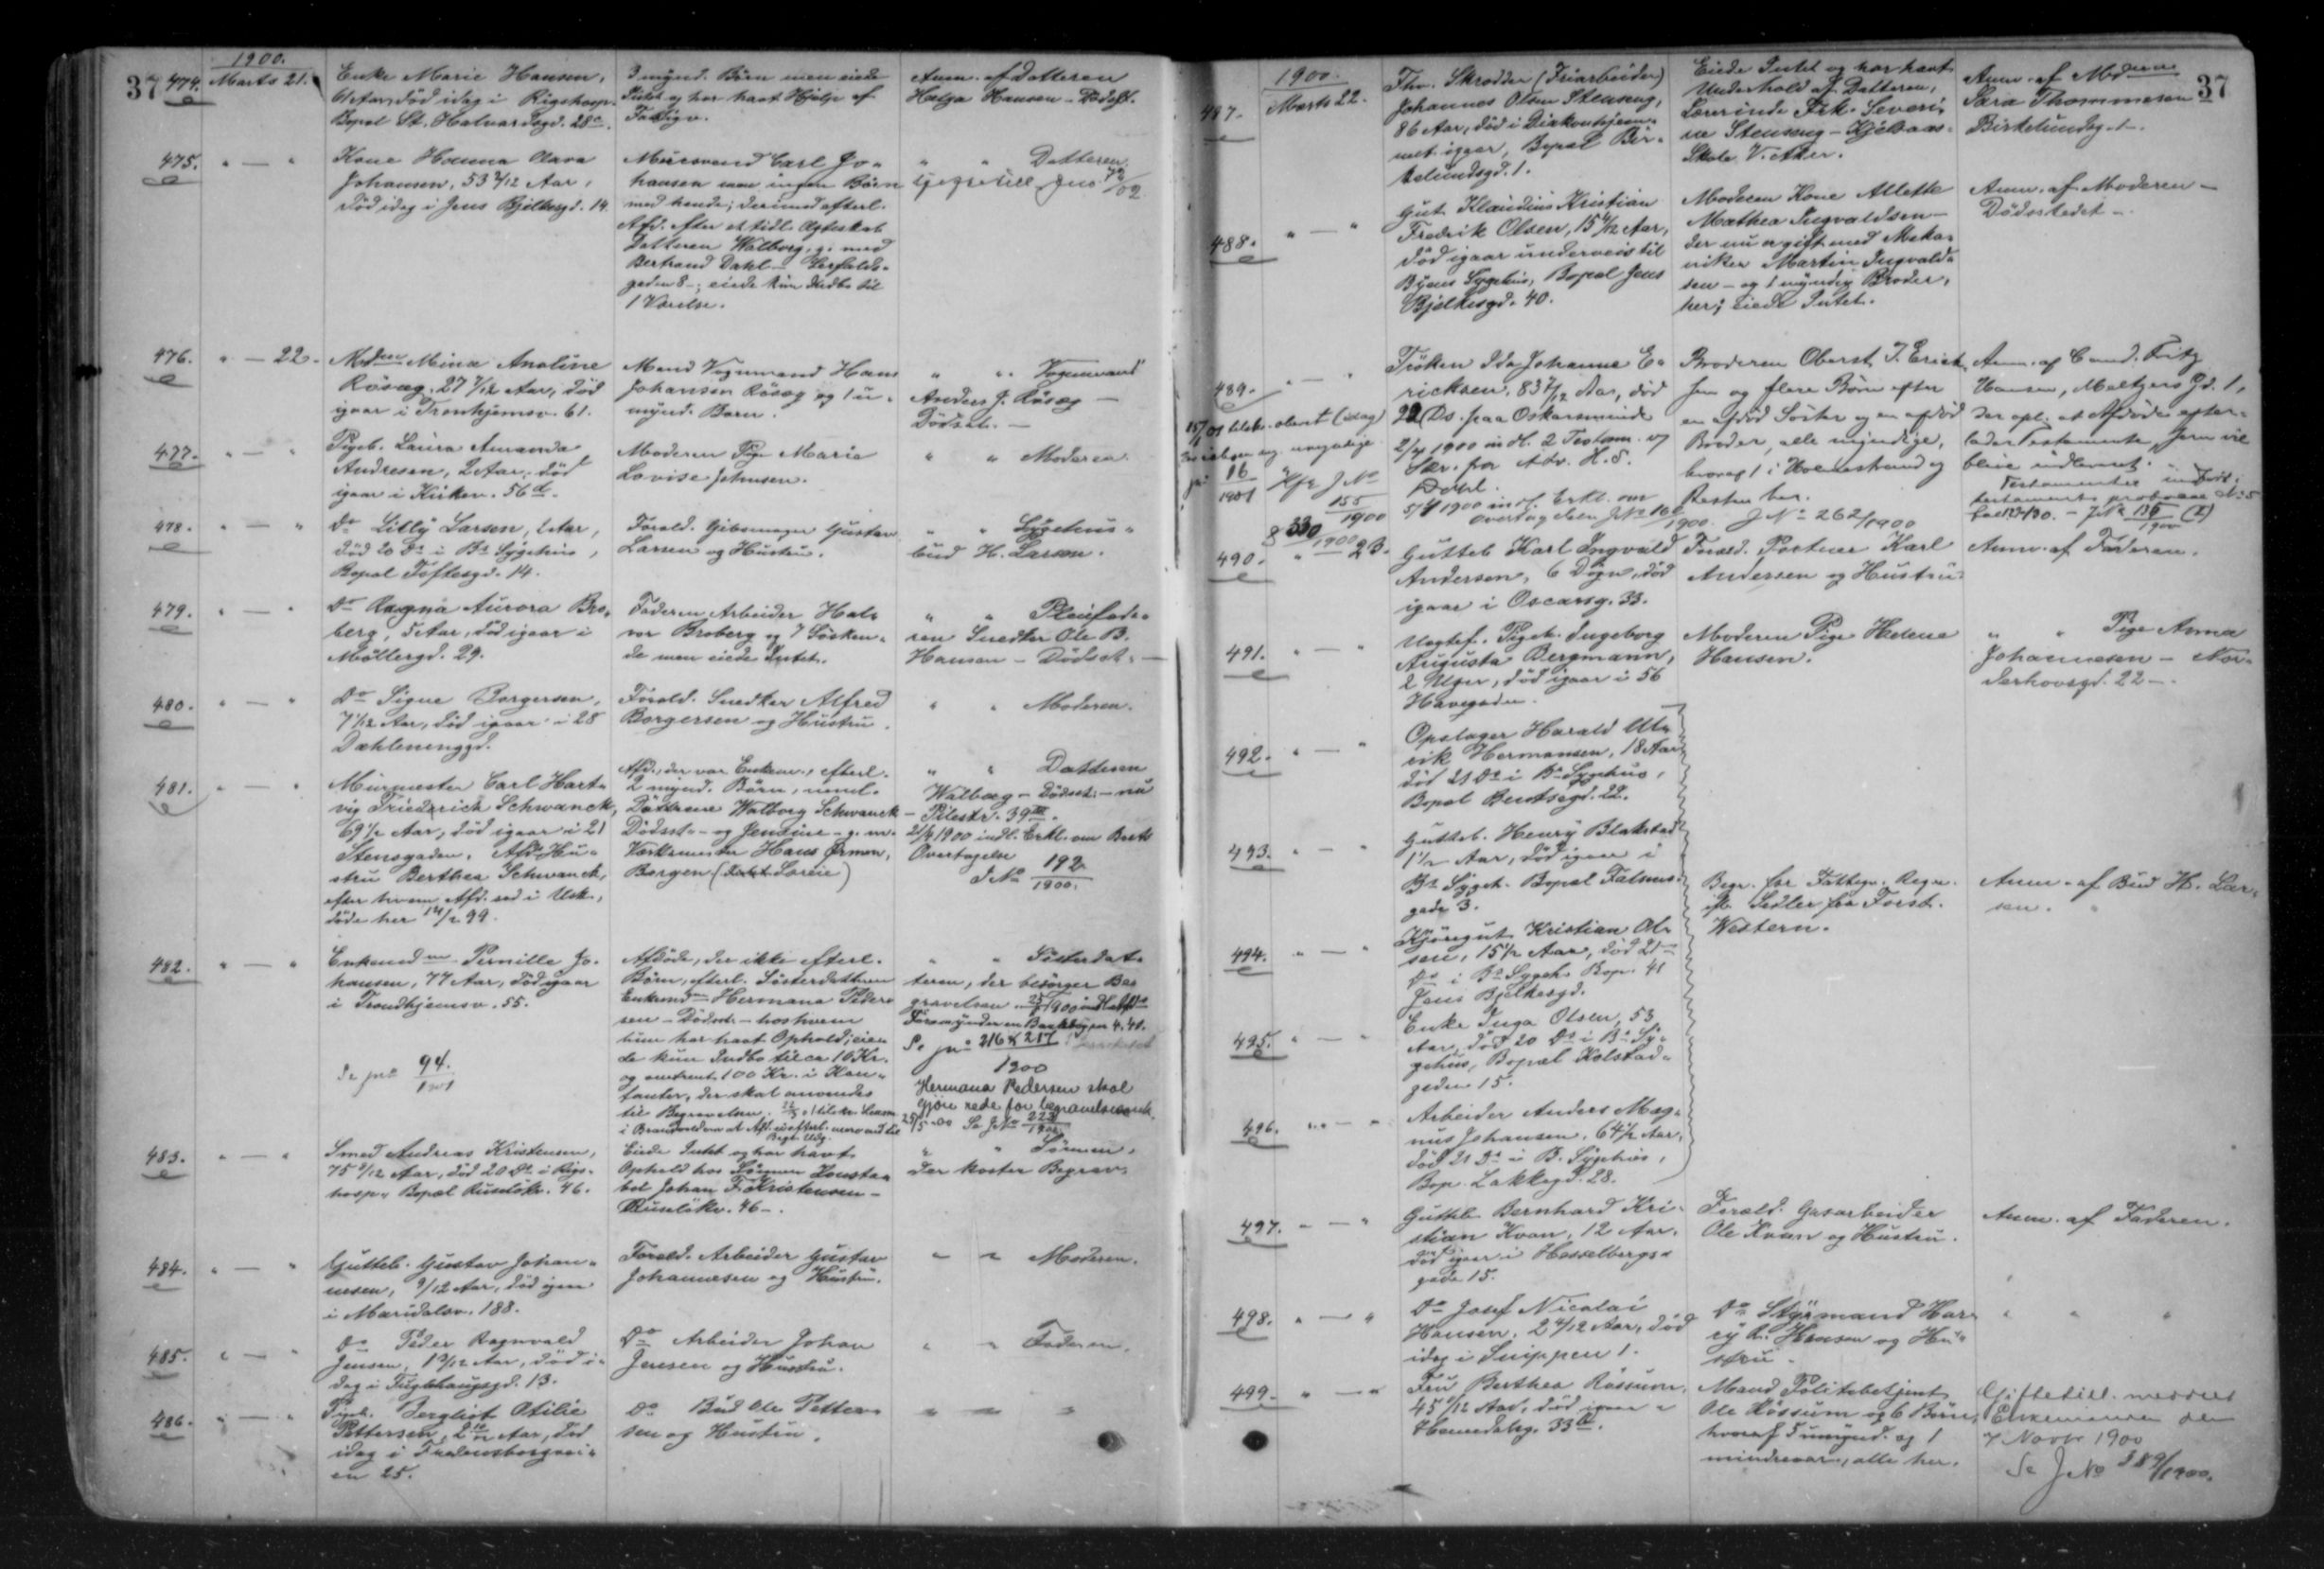 37 1900. 474. Marts 21.
Enke Marie Hansen,
61 Aar, død idag i Rigshosp.
Bopæl St. Halvards gd. 28
3 mynd. Børn men eiede
Intet og har havt Hjelp af
Fattigv.
Anm. af Datteren
Helga Hansen - Dødsst.
475.
Kone Hanna Clava
Johansen, 53 2/12 Aar,
død idag i Jens Bjelkesgd. 14
Murersvend Carl Jo-
hansen men ingen Børn
med hende; derimod efterl.
Afd. efter et tidl. Ægteskab
Datteren Walborg, g. med
Bertrand Dahl -
gaden 8 -; eiede kun Indbo til
1 Værelse.
" " Datteren
476. " — 22.
Mina Analine
Røsæg, 27 7/12 Aar, død
igaar i Tronhjemsv. 61.
Mand Vognmand Hans
Johansen Røsæg og 1 u-
mynd. Barn.
" " Vognmand
Anders J. Røsæg —
Dødsst. —
477.
Pigeb. Laura Amanda
Andresen, 2 Aar, død
igaar i Kirkev. 56 d.
Moderen Pige Marie
Lovise Johnsen.
" " Moderen.
478.
Do Lilly Larsen, 2 Aar,
død 20 Ds i Bs Sygehus,
Bopæl Toftesgd. 14.
Foræld. Gibsmager Gustav
Larsen og Hustru.
" " Sygehus-
bud H. Larsen.
479.
Do Ragna Aurora Bro-
berg, 5 Aar, død igaar i
Møllergd. 29.
Faderen Arbeider Hal-
vor Broberg og 7 Søsken-
de men eiede Intet.
" " Pleiefade-
ren Snedker Ole B.
Hansen - Dødsst. —
480.
Do Signe Borgersen,
7/12 Aar, død igaar i 28
Dæhleninggd.
Foræld. Snedker Alfred
Borgersen og Hustru.
" " Moderen.
481.
Murmester Carl Hart-
vig Friederich Schwanck,
69 1/2 Aar, død igaar i 21
Stensgaden. Afd. Hu-
stru Berthea Schwanck,
efter hvem Afd. sad i Usk.,
døde her 14/2 99.
Afd., der var Enkem., efterl.
2 mynd. Børn, neml.
Døttrene Walborg Schwanck
Dødsst. - og Jensine - g. m.
Værksmester Hans Ørmen,
Borgen
" " Datteren
Walborg - Dødsst. - nu
- Pilestr. 39 III.
21/4 1900 indl. Erkl. om Boets
Overtagelse
J No 192/1900.
482.
Enkemad. Pernille Jo-
hansen, 77 Aar, død igaar
i Trondhjemsv. 55.
Se jn 94./1901
Afdøde, der ikke efterl.
Børn, efterl. Søsterdatteren
Enkemad. Hermana Peder-
sen - Dødsst. - hos hvem
hun har havt Ophold; eie-
de kun Indbo til ca 10 Kr.
og omtrent 100 Kr. i Kon-
tanter, der skal anvendes
til Begravelsen.
" " Søsterdat-
teren, der besørger Be-
gravelsen.
Se jn 216 & 217
1900
Hermana Pedersen skal
gjøre rede for
25/5 00 Se J No 223/1900
483.
Smed Andreas Kristensen,
75 2/12 Aar, død 20 Ds i Rigs-
hosp. Bopæl Ruseløkv. 46.
Eiede Intet og har havt
Ophold hos Sønnen Konsta-
bel Johan F. Kristensen -
Ruseløkv. 46 -.
" " Sønnen,
der koster Begrav.
484.
Gutteb. Gustav Johan-
nesen, 9/12 Aar, død igaar
i Maridalsv. 188.
Foræld. Arbeider Gustav
Johannesen og Hustru.
" " Moderen.
485.
Do Peder Ragnvald
Jensen, 1 9/12 Aar, død i-
dag i Fuglehaugsgd. 13.
Do Arbeider Johan
Jensen og Hustru.
" " Faderen.
486.
Pigeb. Bergliot Otilie
Pettersen, 2 10/12 Aar, død
idag i Fredensborgvei-
en 25.
Do Bud Ole Petter-
sen og Hustru.
" " "
37
1900.
487. Marts 22.
Fhv. Skrædder (Friarbeider)
Johannes Olsen Stenseng,
86 Aar, død i Diakonhjem-
met igaar, Bopæl Bir-
kelundsgd. 1.
Eiede Intet og har havt
Underhold af Datteren,
Lærerinde Frk. Severi-
ne Stenseng - Kjelsaas
Skole, V. Aker.
Anm. af
Sara Thommesen
Birkelundsg. 1 -
488.
Gut Klaudius Kristian
Fredrik Olsen, 15 4/12 Aar,
død igaar underveis til
Byens Sygehus, Bopæl Jens
Bjelkesgd. 40.
Moderen Kone Allette
Mathea Ingvaldsen -
der nu er gift med Meka-
niker Martin Ingvald-
sen - og 1 myndig Broder,
her; eiede Intet.
Anm. af Moderen -
Dødsstedet -.
489.
Frøken Ida Johanne E-
ricksen, 83 7/12 Aar, død
22 Ds. paa Oskarsminde
2/4 1900 indl. 2 Testam. og
Skr. fra Adv. H. S.
Dahl.
5/4 1900 indl. Erkl. om
Overtagelsen J No 166/1900. J No 262/1900
Broderen Oberst T. Erick-
sen og flere Børn efter
en afdød Søster og en afdød
Broder, alle myndige,
hvoraf 1 i Holmestrand og
Resten her.
Anm. af Cand. Fritz
Hansen, Meltzers Gd. 1,
der opl. at Afdøde efter-
lader Testamente, som vil
blive indleveret.
16/1901
155/1900
330/1900
490. " — 23.
Gutteb. Karl Ingvald
Andersen, 6 Døgn, død
igaar i Oscarsg. 33.
Foræld. Portner Karl
Andersen og Hustru.
Anm. af Faderen.
491.
Uegtef. Pigeb. Ingeborg
Augusta Bergmann,
2 Uger, død igaar i 56
Havegaden.
Moderen Pige Helene
Hansen.
" " Pige Anna
Johannesen - Nor-
derhovsgd. 22 -.
492.
Opslager Harald Ul-
rik Hermansen, 18 Aar,
død 21 Ds i Bs Sygehus,
Bopæl Bentsegd. 22.
493.
Gutteb. Henry Blakstad
1 1/2 Aar, død igaar i
Bs Sygeh. Bopæl Falsens-
gade 3.
Begr. for Fattigv. Regn.
ifl. Sedler fra Forst.
Western.
Anm. af Bud H. Lar-
sen.
494.
Kjøregut Kristian Ol-
sen, 15 1/2 Aar, død 21
Ds i Bs Sygeh. Bop. 41
Jens Bjelkesgd.
495.
Enke Inga Olsen, 53
Aar, død 20 Ds i Bs Sy-
gehus, Bopæl Kolstad-
gaden 15.
496.
Arbeider Anders Mag-
nus Johansen, 64 1/2 Aar,
død 21 Ds i B. Sygehus,
Bop. Lakkegd. 28.
497.
Gutteb. Bernhard Kri-
stian Kvan, 12 Aar,
død igaar i Hesselbergs-
gade 15.
Foræld. Gasarbeider
Ole Kvan og Hustru.
Anm. af Faderen.
498.
Do Josef Nicolai
Hansen, 2 4/12 Aar, død
idag i Snippen 1.
Do Styrmand Har-
ry Hansen og Hu-
stru.
" " "
499.
Fru Berthea Røssum,
45 /12 Aar, død igaar i
33 b.
Mand Politibetjent
Ole Røssum og 6 Børn,
hvoraf 5 umynd. og 1
mindreaar., alle her.
Giftetill. meddelt
Enkemanden den
7 Novbr 1900
Se J No 389/1900.